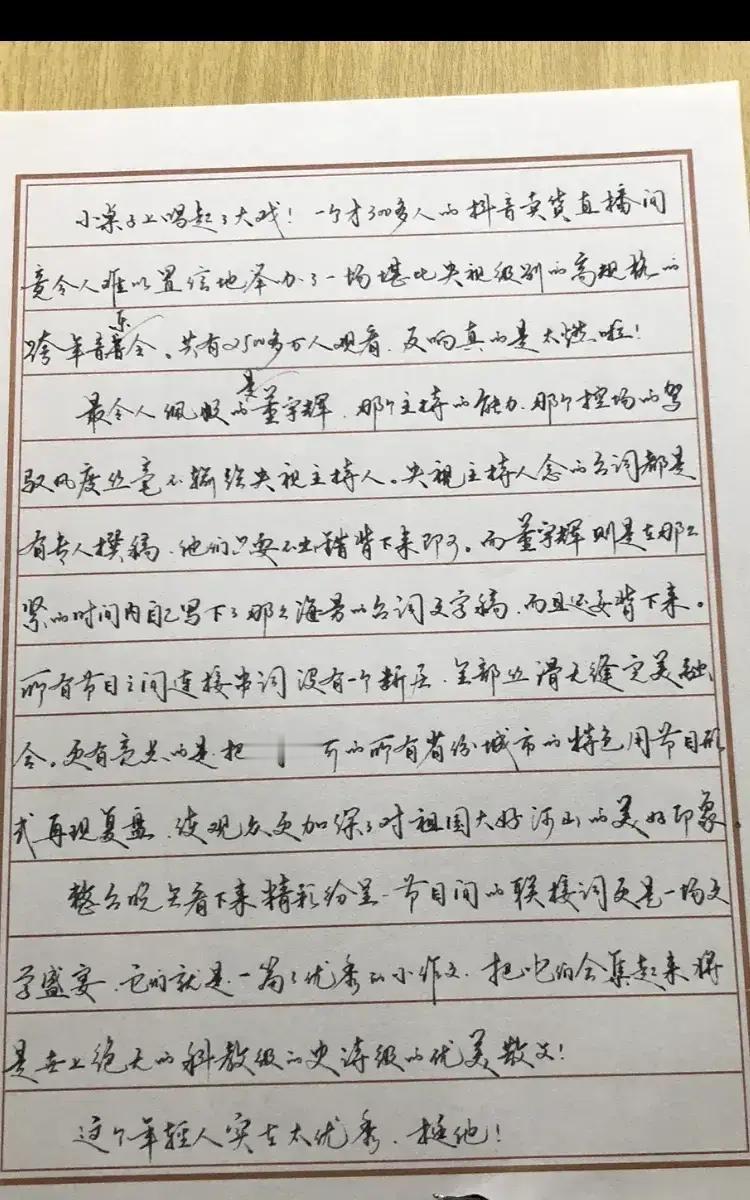 小桌子上唱起了大戏！一个才300多人的抖音卖货直播间
竟令人难以置信地举办了一场堪比央视级别的高规格的
跨年音乐会、共有2500多万人观看、反响真的是太燃啦！
最令人佩服的是董宇辉、那个主持的能力、那个控场的驾
驭风度丝毫不输给央视主持人。央视主持人念的台词都是
有专人撰稿、他们只要不出错背下来即可。而董宇辉则是在那么
紧的时间内自己写下了那么海量的台词文字稿、而且还要背下来。
所有节目之间连接串词没有一个断层、全部丝滑无缝完美融
合。更有亮点的是把 的所有省份城市的特色用节目形
式再现复盘、使观众更加深了对祖国大好河山的美好印象
整台晚会看下来精彩纷呈、节目间的联接词更是一场文
学盛宴、它的就是一篇篇优秀的小作文、把它们合集起来将
是世上绝无的科教级的史诗级的优美散文！
这个年轻人实在太优秀、挺他！